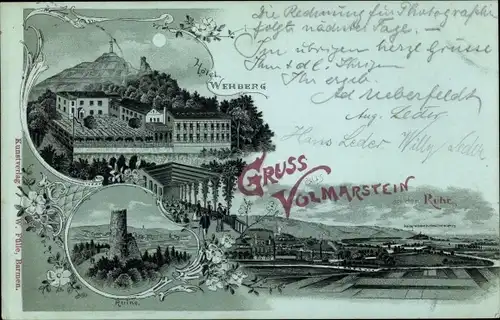 Die Rechnung für Photographie
folgt nächster Tage. —
Im übrigen herzl Grüsse
Ihr ergeb.
Ad Ueberfeldt
Aug. Leder
Hans Leder Willy Leder
Hotel
WEHBERG
GRUSS
aus
VOLMARSTEIN
an der RUHR.
Ruine.
Kunstverlag
Pülle, Barmen.